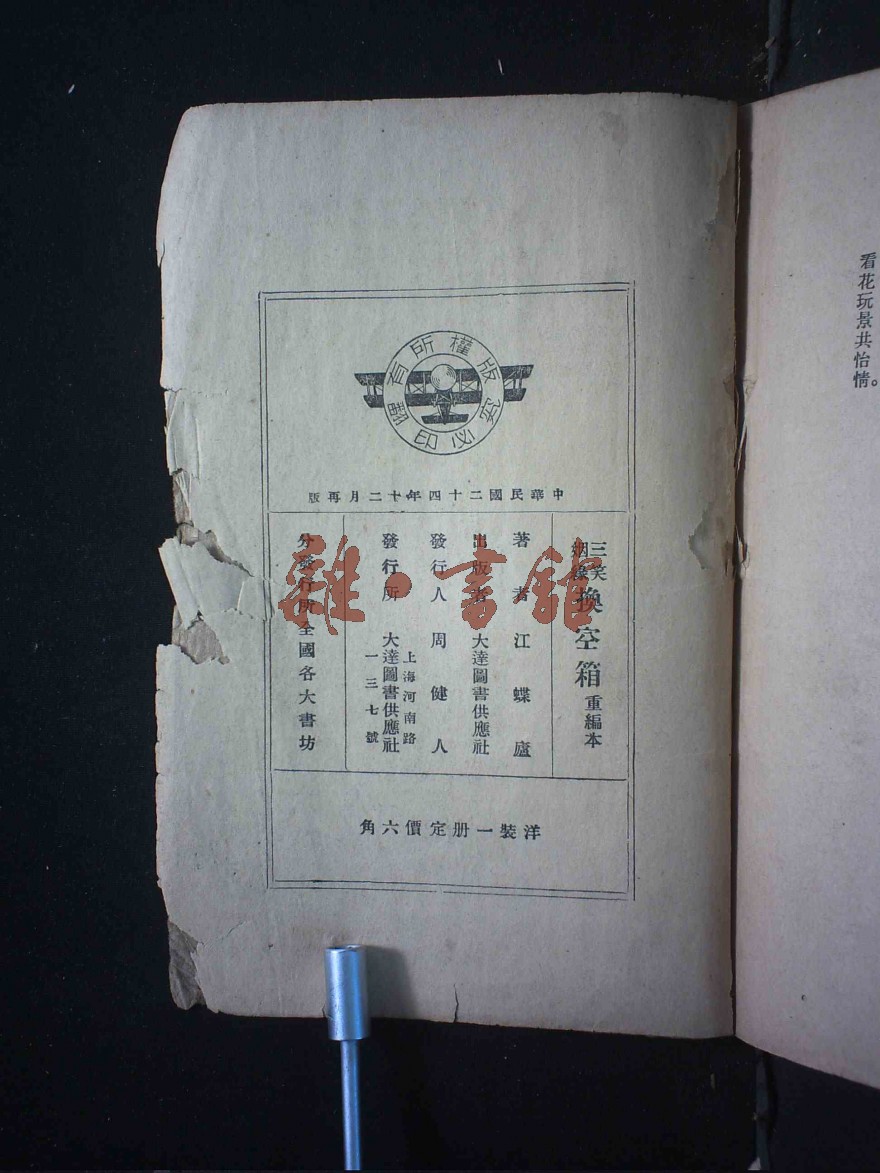 看花玩景共怡情。
版權所有
翻印必究
中華民國二十四年十二月再版
三笑姻緣 換空箱 重編本
著者 江蝶廬
出版者 大達圖書供應社
發行人 周健人
發行所 上海河南路一三七號 大達圖書供應社
分發行所全國各大書坊
洋裝一册定價六角
雜·書館